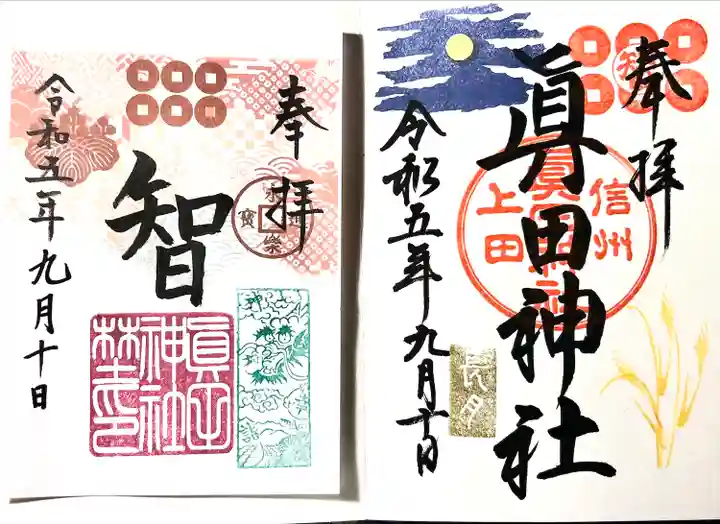 奉拝
眞田神社
信州
上田
長月
令和五年九月十日
奉拝
智
永樂通寳
眞田神社
令和五年九月十日